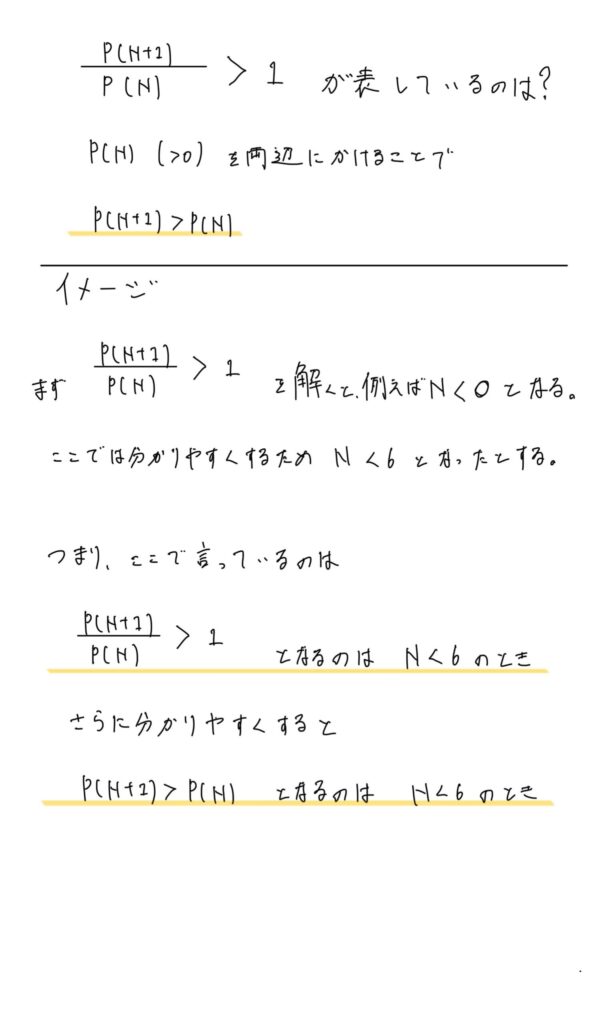 P(N+1)/P(N) > 1 が表しているのは?
P(N) (>0) を両辺にかけることで
P(N+1) > P(N)
イメージ
まず P(N+1)/P(N) > 1 を解くと、例えばN<○となる。
ここでは分かりやすくするため N<6 となったとする。
つまり、ここで言っているのは
P(N+1)/P(N) > 1 となるのは N<6のとき
さらに分かりやすくすると
P(N+1) > P(N) となるのは N<6のとき